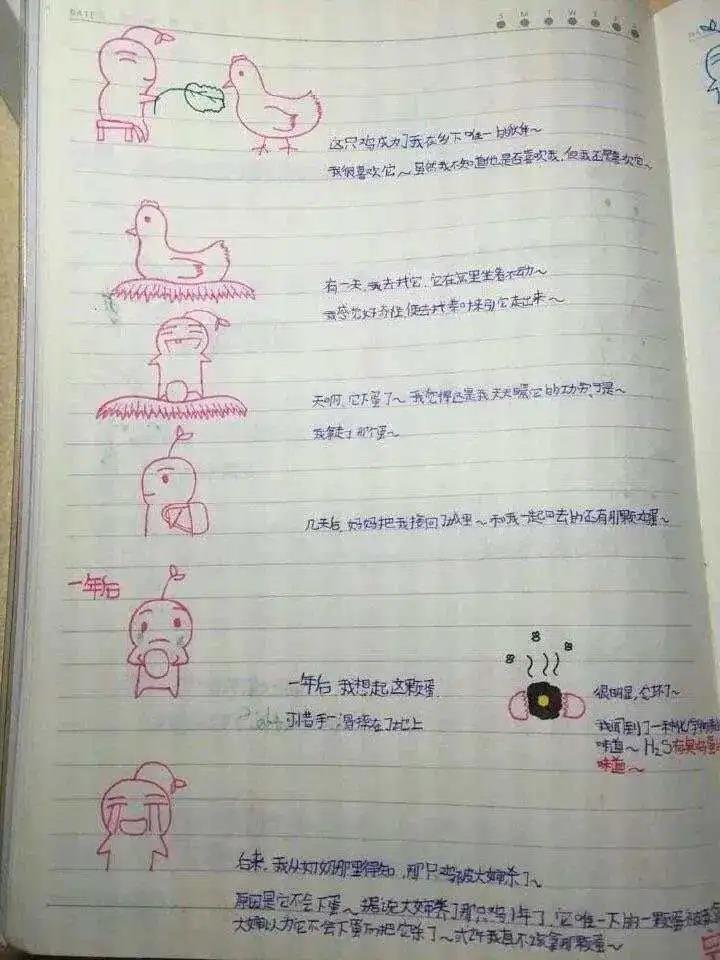 DATE
S M T W F S
这只鸡成为了我在乡下唯一的伙伴~
我很喜欢它~虽然我不知道他是否喜欢我,但我还是喜欢它~
有一天,我去找它,它在窝里坐着不动~
我感觉好奇怪,便去找菜叶来引它走出来~
天啊,它下蛋了~我觉得这是我天天喂它的功劳,于是~
我拿走了那个蛋~
几天后,妈妈把我接回了城里~和我一起回去的还有那颗鸡蛋~
一年后
一年后,我想起这颗蛋,
可惜手一滑摔在了地上
很明显,它坏了~
我闻到了一种化学物质
味道~H2S有臭鸡蛋
味道~
后来,我从奶奶那里得知,那只鸡被大婶杀了~
原因是它不会下蛋~据说大婶养了那只鸡1年了,它唯一下的一颗蛋被
大婶以为它不会下蛋而把它杀了~或许我真不该拿那颗蛋~